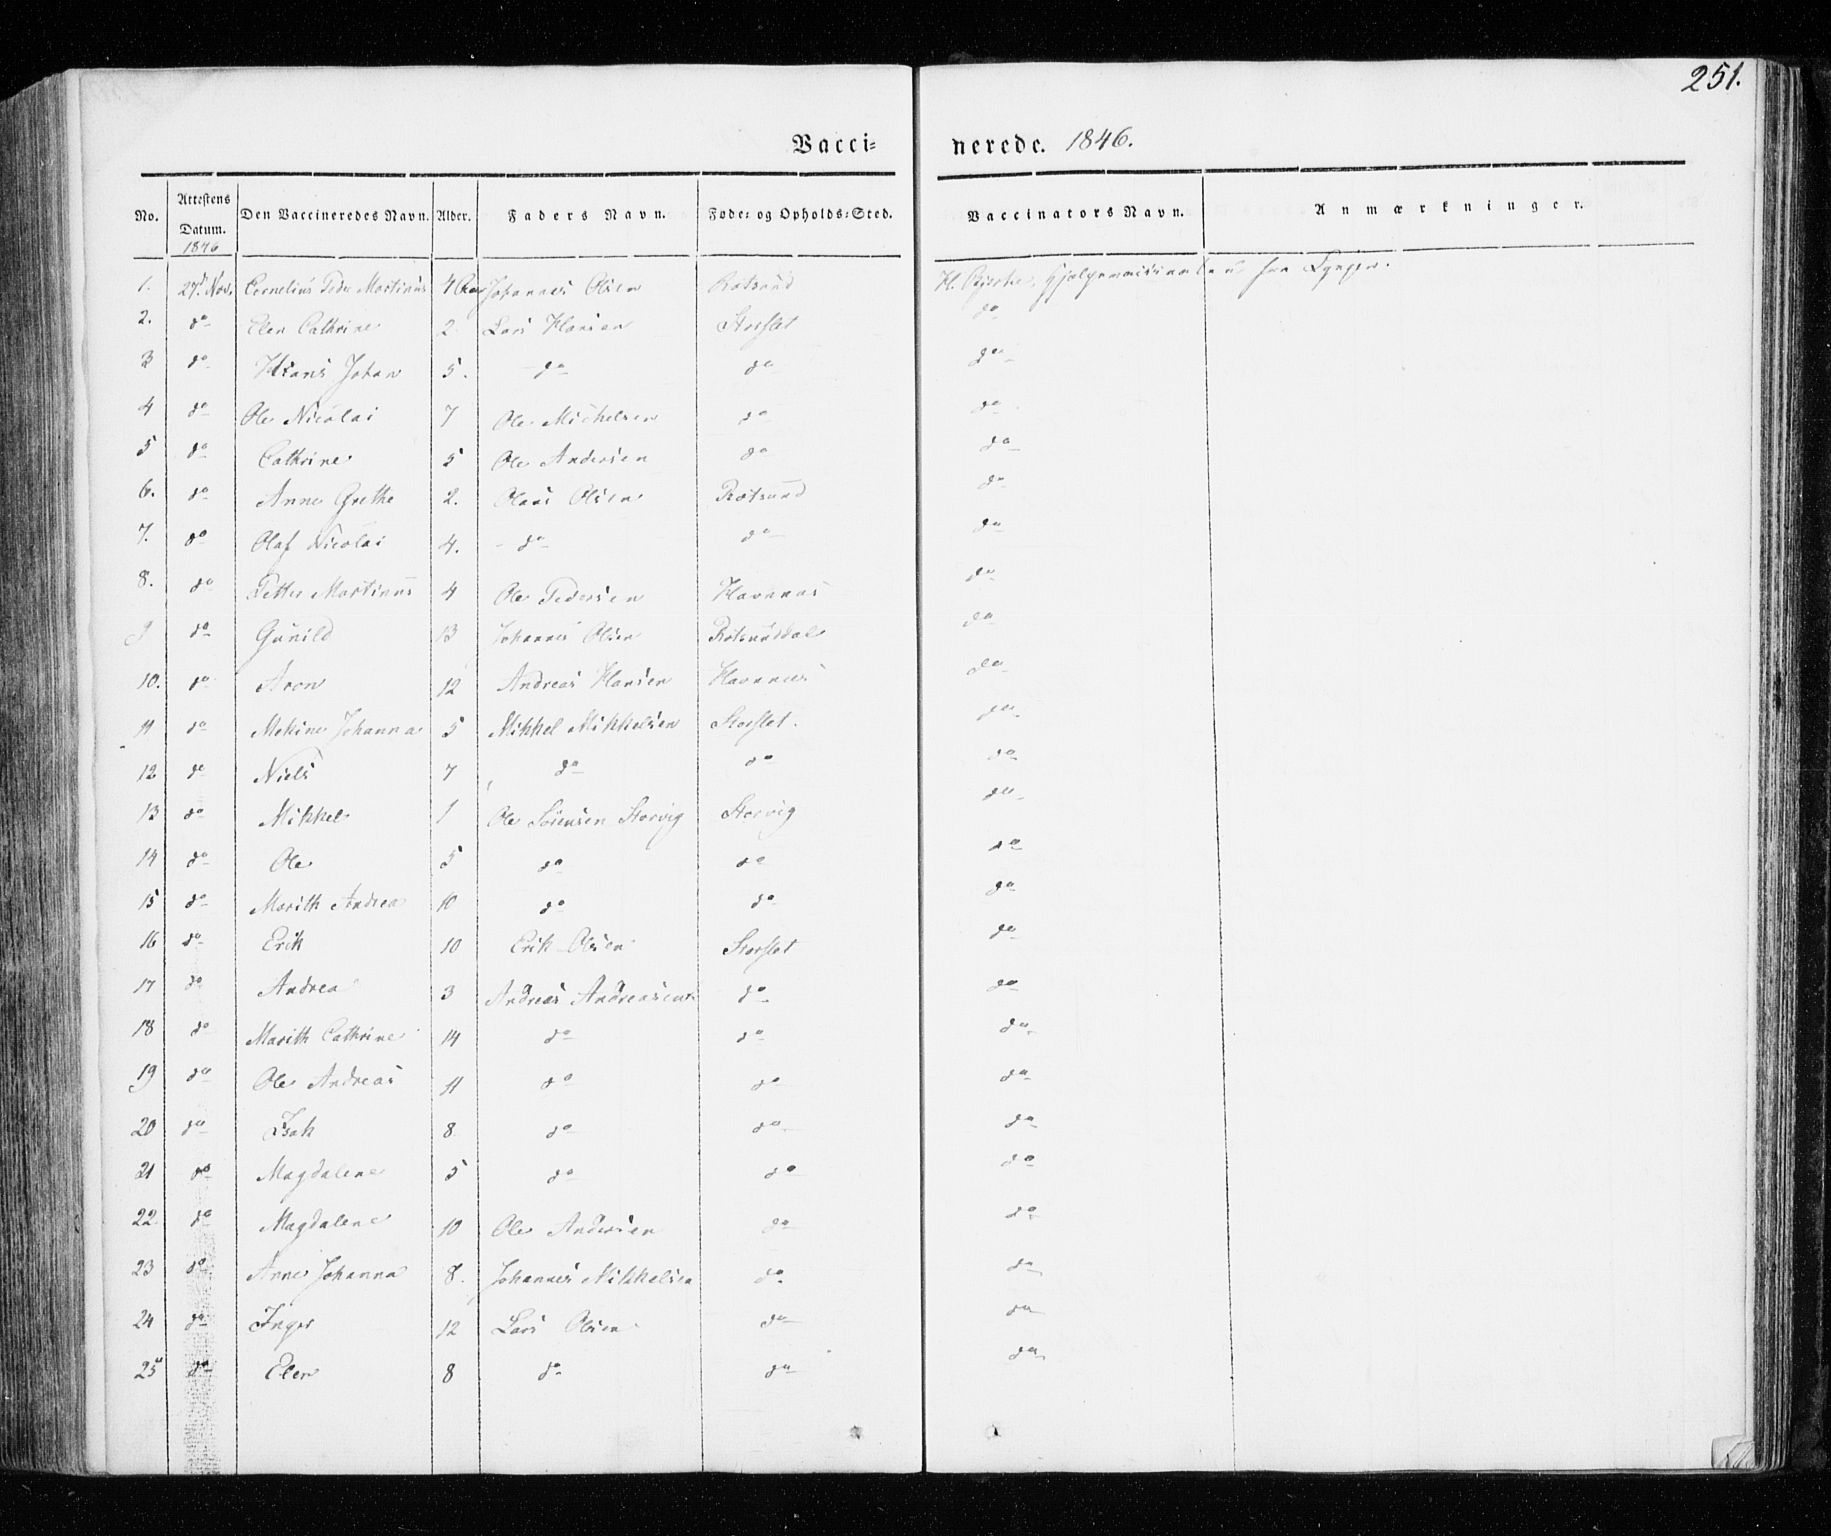 251.
Vacci= nerede. 1846.
No. Attestens Datum. Den Vaccineredes Navn. Alder. Faders Navn. Føde= og Opholds=Sted. Vaccinators Navn. Anmærkninger.
1846
1. 27d. Nov. Cornelius Peder Martinus 4 Johannes Olsen Rotsund H. fra Lyngen.
2. do Elen Cathrine 2. Lars Hansen Storslet do
3 do Hans Johan 5. do do do
4 do Ole Nicolai 7 Ole Michelsen do do
5 do Cathrine 5 Ole Andersen do do
6. do Anne Grethe 2. Olaus Olsen Rotsund do
7. do Olaf Nicolai 4. do do do
8. do Petter Martinus 4 Ole Pedersen Havnnæs do
9 do Gunild 13 Johannes Olsen Rotsunddal do
10. do Aron 12 Andreas Hansen Havnnæs do
11 do Mekine Johanna 5 Mikkel Mikkelsen Storslet. do
12 do Niels 7 do do do
13 do Mikkel 1 Ole Sørensen Storvig Storvig do
14 do Ole 5 do do do
15 do Marith Andrea 10 do do do
16 do Erik 10 Erik Olsen Storslet do
17 do Andrea 3 Andreas Andreasen do do
18 do Marith Cathrine 14 do do do
19 do Ole Andreas 11 do do do
20 do Isak 8 do do do
21 do Magdalene 5 do do do
22. do Magdalene 10 Ole Andersen do do
23 do Anne Johanna 8. Johannes Mikkelsen do do
24 do Inger 12 Lars Olsen do do
25 do Elen 8 do do do